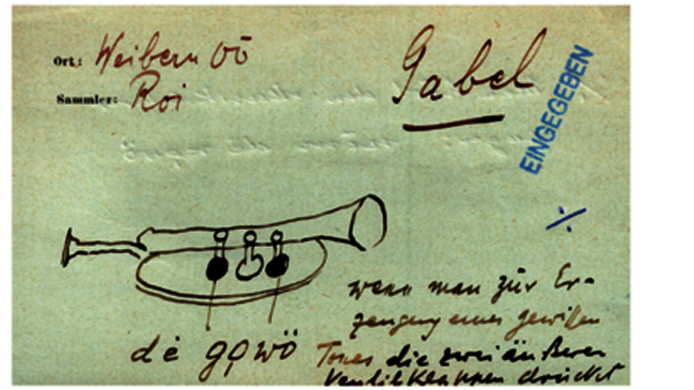 Ort: Weibern OÖ
Sammler: Roi
Gabel
EINGEGEBEN
dė gǫwö
wenn man zur Er-
zeugung eines gewissen
Tones die zwei äußeren
Ventilklappen drückt